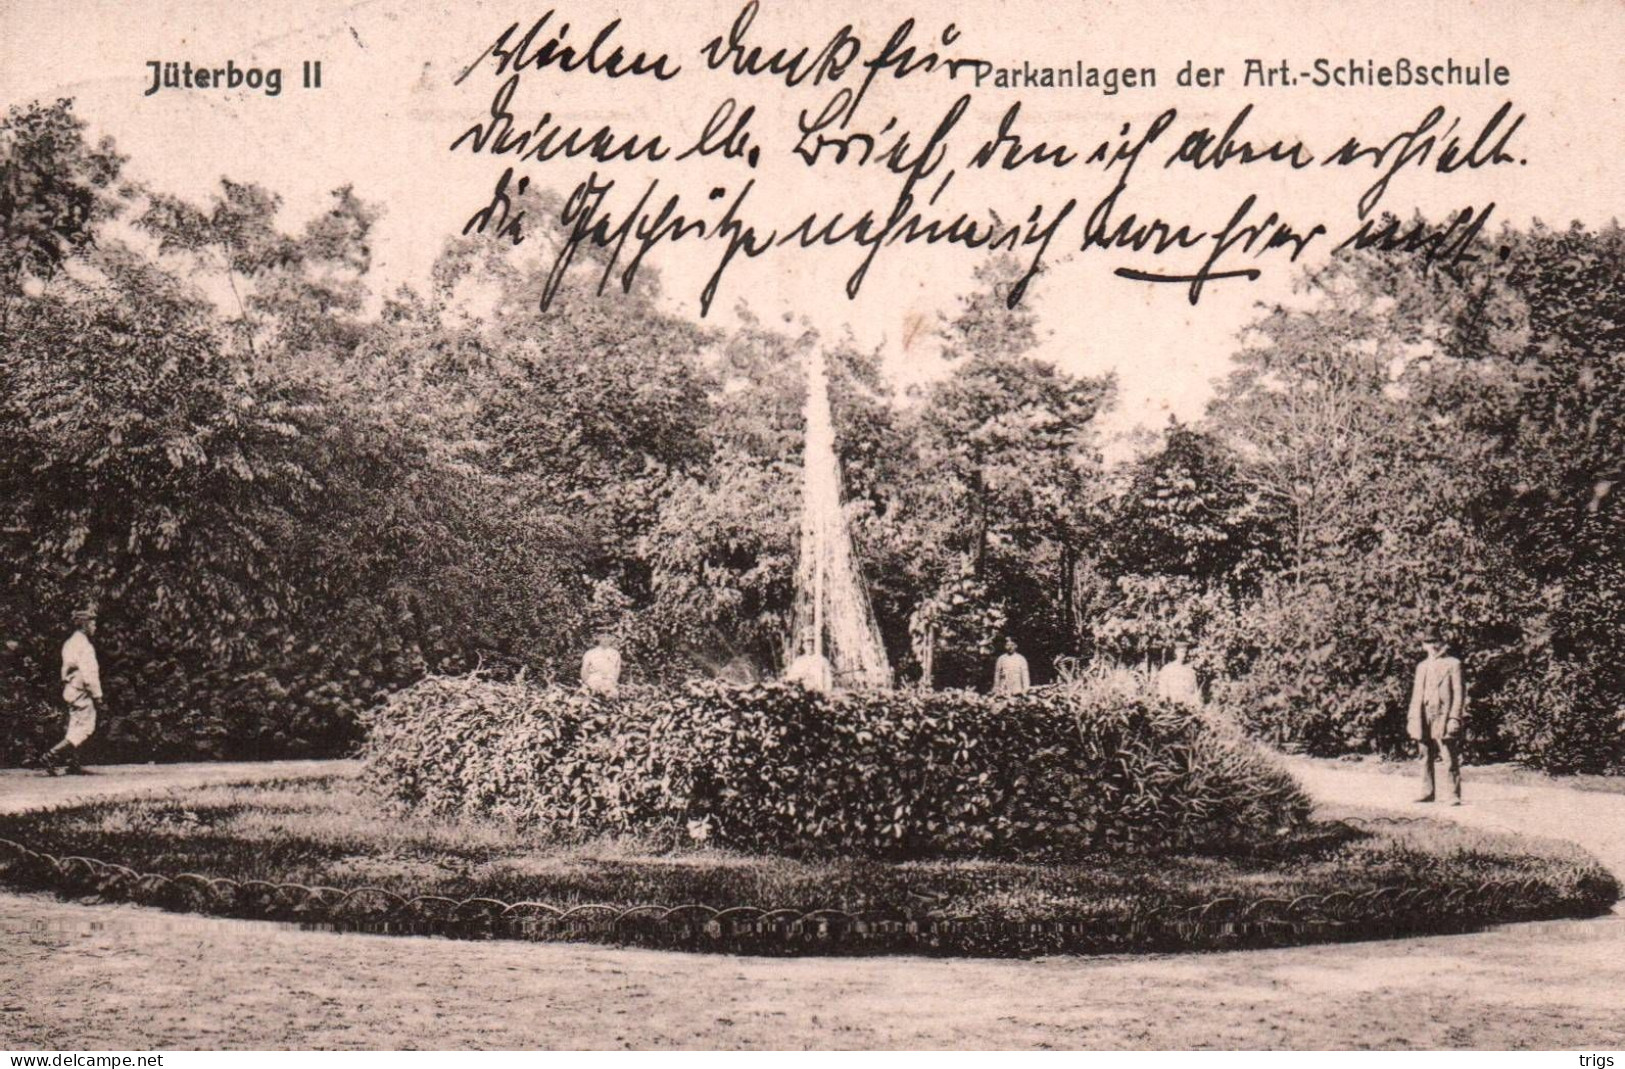 Jüterbog II
Parkanlagen der Art.-Schießschule
Vielen Dank für
Deinen lb. Brief, den ich aber erhielt.
die Geschütze nehme ich von hier mit.
www.delcampe.net
trigs